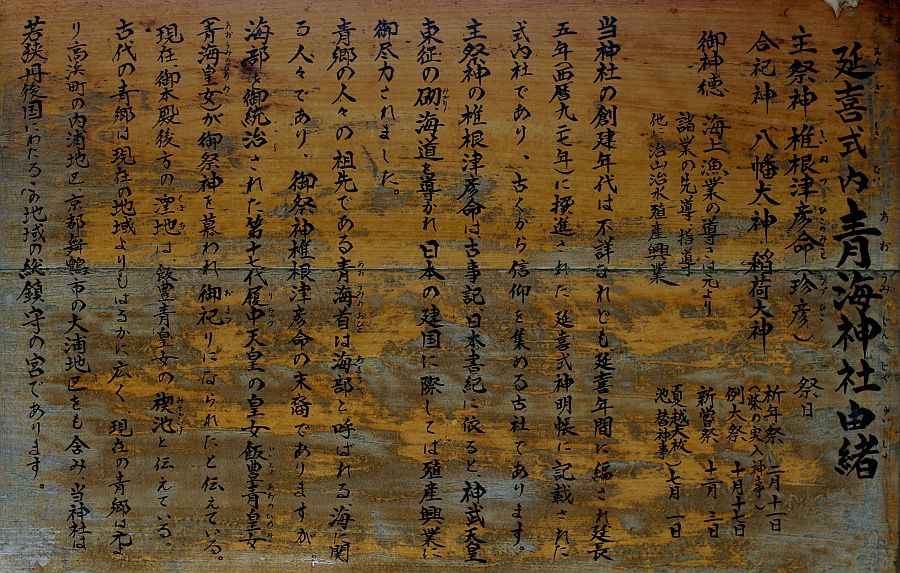 延喜式内 青海神社由緒
主祭神 椎根津彦命(珍彦)
合祀神 八幡大神・稲荷大神
御神徳 海上漁業の導きは元より
諸業の先導・指導
他に治山治水殖産興業
祭日
祈年祭 二月十一日
例大祭
新嘗祭
夏越大祓
池替神事 七月一日
当神社の創建年代は不詳なれども延喜年間に編され延長
五年(西暦九二七年)に撰進された延喜式神明帳に記載された
式内社であり、古くから信仰を集める古社であります。
主祭神の椎根津彦命は古事記、日本書紀に依ると、神武天皇
東征の砌、海道を導かれ、日本の建国に際しては殖産興業に
御尽力されました。
青郷の人々の祖先である青海首は海部と呼ばれる、海に関
る人々であり、御祭神椎根津彦命の末裔でありますが、
海部を御統治された第十七代履中天皇の皇女飯豊青皇女
(青海皇女)が御祭神を慕われ御祀りになられたと伝えている。
現在御本殿後方の窪地は、飯豊青皇女の禊池と伝えている。
古代の青郷は現在の地域よりもはるかに広く、現在の青郷は元よ
り高浜町の内浦地区、京都舞鶴市の大浦地区をも含み、当神社は
若狭丹後国にわたるこの地域の総鎮守の宮であります。